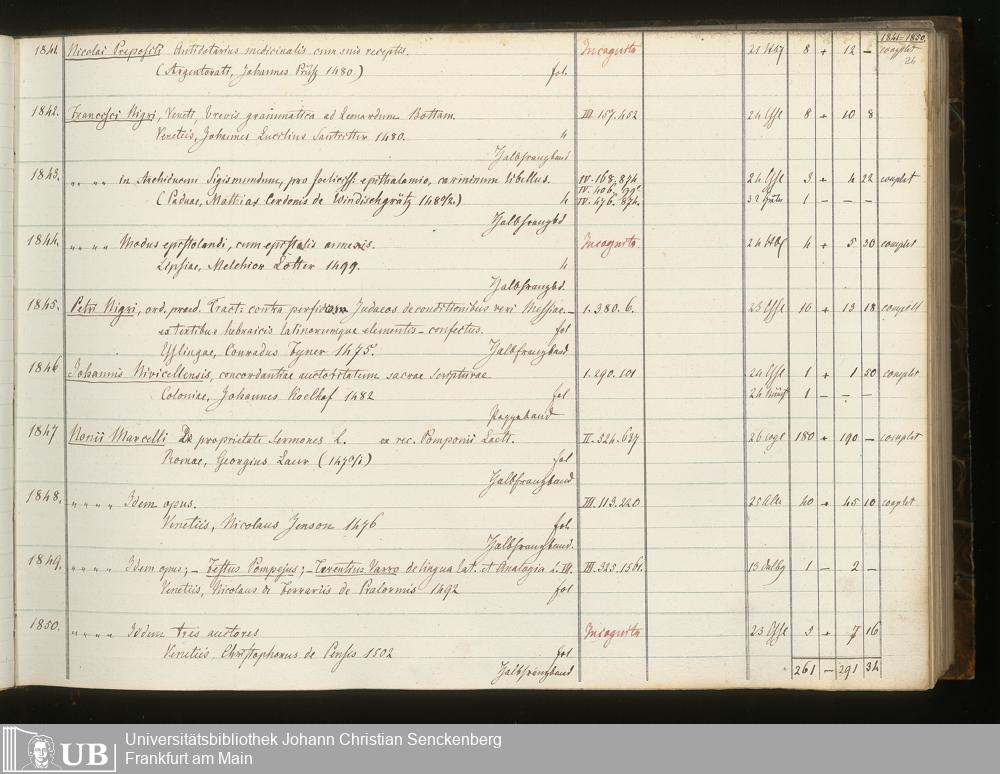 1841-1850.
26
1841. Nicolai Prepositi Antidotarius medicinalis cum suis receptis. Incognito 21 8 + 12 – complet
(Argentorati, Johannes Prüß 1480.) fol.
1842. Francisci Nigri, Veneti, brevis grammatica ad Leonardum Bottam. III. 157. 452 24 8 + 10 8
Venetiis, Johannes Lucilius Santritter 1480. 4
Halbfranzband
1843. " " " " in Archiducem Sigismundum, pro epithalamio, carminum libellus. IV. 168. 874 24 3 + 4 22 complet
IV. 406.
(Paduae, Mattias Cerdonis de Windischgrätz 1480/2.) 4 IV. 476. 874. 32 1 – – –
Halbfranzbd
1844. " " " " Modus epistolandi, cum epistolis annexis. Incognito 24 4 + 5 30 complet
Lipsiae, Melchior Lotter 1499. 4
Halbfranzbd.
1845. Petri Nigri, ord. praed. Tract. contra perfidos Judaeos de conditionibus veri Messiae – 1. 380. 6. 23 10 + 13 18 complet
ex textibus hebraicis latinorumque elementis – confectus. fol
Esslingae, Conradus Fyner 1475. Halbfranzband
1846 Johannis Nivicellensis, concordantiae auctoritatum sacrae scripturae 1. 290. 101 24 1 + 1 30 complet
Coloniae, Johannes Koelhof 1482 fol 24 1 – – –
Pappband
1847 Nonii Marcelli De proprietate sermones L. ex rec. Pomponii Laeti. II. 324. 637 26 180 + 190 – complet
Romae, Georgius Laur (1470/1) fol
Halbfranzband
1848. " " " " Idem opus. III. 113. 220 25 40 + 45 10 complet
Venetiis, Nicolaus Jenson 1476 fol.
Halbfranzband.
1849. " " " " Idem opus; – Festus Pompejus; – Terentius Varro de lingua lat. et Analogia L. III. III. 325. 1561. 13 Dalbg 1 – 2 –
Venetiis, Nicolaus de Ferrariis de Pralormis 1492 fol
1850. " " " " Iidem tres auctores Incognito 23 5 + 7 16
Venetiis, Christophorus de Pensis 1502 fol
Halbfranzband
261 – 291 34
UB
Universitätsbibliothek Johann Christian Senckenberg
Frankfurt am Main